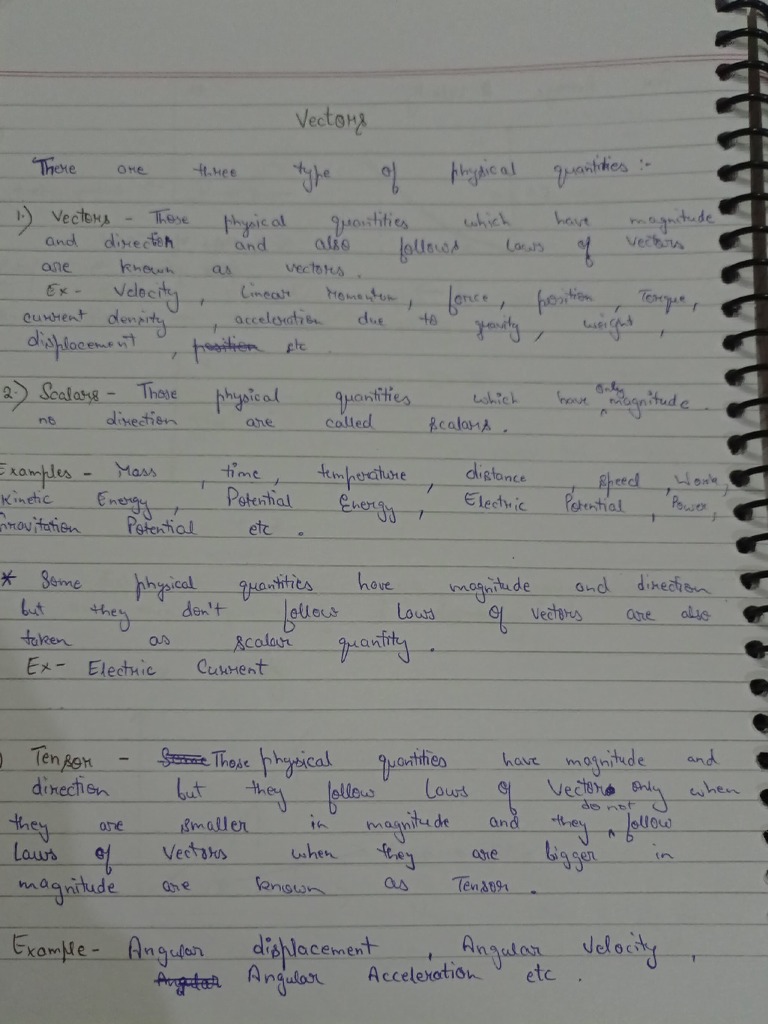 Vectors
There are three type of physical quantities :-
1.) Vectors - Those physical quantities which have magnitude
and direction and also follows laws of vectors
are known as vectors.
Ex- Velocity, Linear Momentum, force, position, Torque,
current density, acceleration due to gravity, weight,
displacement, position etc
2.) Scalars - Those physical quantities which have only magnitude.
no direction are called scalars.
Examples - Mass, time, temperature, distance, speed, Work,
Kinetic Energy, Potential Energy, Electric Potential, Power,
Gravitation Potential etc.
* Some physical quantities have magnitude and direction
but they don't follow laws of vectors are also
taken as scalar quantity.
Ex- Electric Current
) Tensor - Some Those physical quantities have magnitude and
direction but they follow laws of Vectors only when
they are smaller in magnitude and they do not follow
laws of Vectors when they are bigger in
magnitude are known as Tensor.
Example- Angular displacement, Angular Velocity,
Angular Angular Acceleration etc.